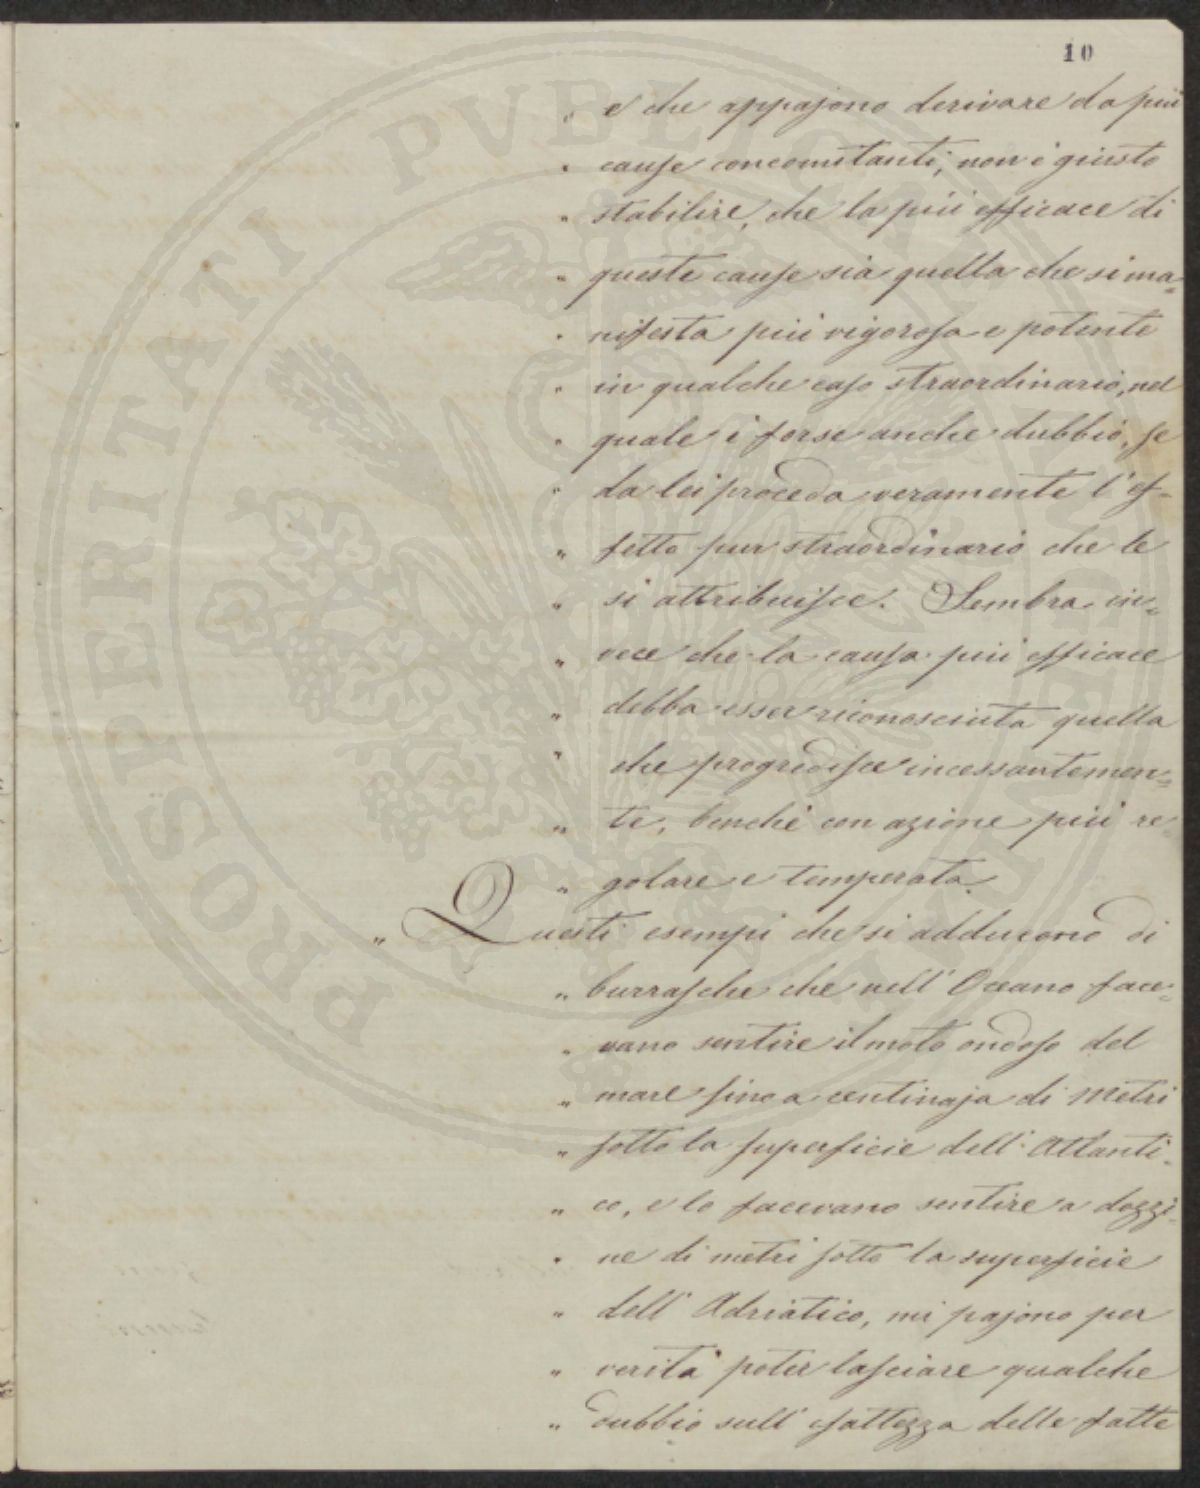 10
„ e che appajono derivare da più
„ cause concomitanti, non è giusto
„ stabilire, che la più efficace di
„ queste cause sia quella che si ma=
„ nifesta più vigorosa e potente
„ in qualche caso straordinario, nel
„ quale è forse anche dubbio, se
„ da lei proceda veramente l'ef=
„ fetto pur straordinario che le
„ si attribuisce. Sembra in=
„ vece che la causa più efficace
„ debba esser riconosciuta quella
„ che progredisce incessantemen=
„ te, benchè con azione più re=
„ golare e temperata.
„ Questi esempi che si adducono di
„ burrasche che nell'Oceano face=
„ vano sentire il moto ondoso del
„ mare sino a centinaja di Metri
„ sotto la superficie dell'Atlanti=
„ co, e lo facevano sentire a dozzi=
„ ne di metri sotto la superficie
„ dell'Adriatico, mi pajono per
„ verità poter lasciare qualche
„ dubbio sull'esattezza delle fatte
PROSPERITATI PVBLICAE